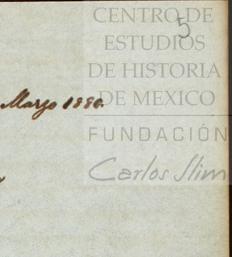 CENTRO DE
5
ESTUDIOS
DE HISTORIA
Marzo 1886.
DE MEXICO
FUNDACIÓN
Carlos Slim